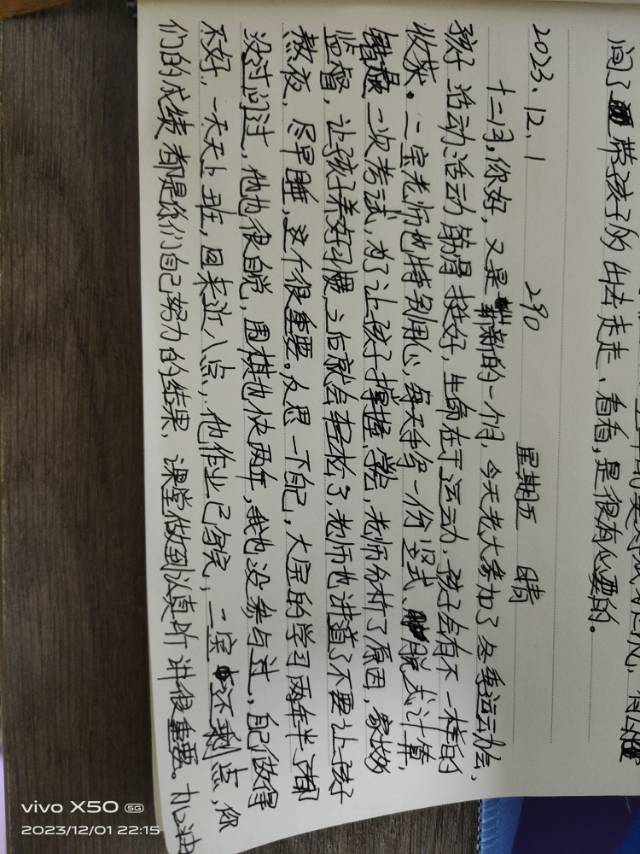 间了 带孩子的出去走走、看看,是很有必要的。
2023.12.1 290 星期五 晴
十二月,你好,又是新的一个月,今天老大参加了冬季运动会,
孩子活动活动筋骨挺好,生命在于运动,孩子会有不一样的
收获。二宝老师也特别用心,每天手写一份竖式、脱式计算,
一次考试,为了让孩子掌握学会,老师分析了原因,家长多
监督,让孩子养好习惯,之后就会轻松了,老师也讲道了不要让孩子
熬夜,尽早睡,这个很重要。反思一下自己,大宝的学习两年半都
没过问过,他也很自觉,围棋也快两年,我也没参与过,自己做得
不好,一天天上班,回来近八点,他作业已写完,二宝还剩点,你
们的成绩都是你们自己努力的结果,课堂做到认真听讲很重要。加油
vivo X50 5G
2023/12/01 22:15